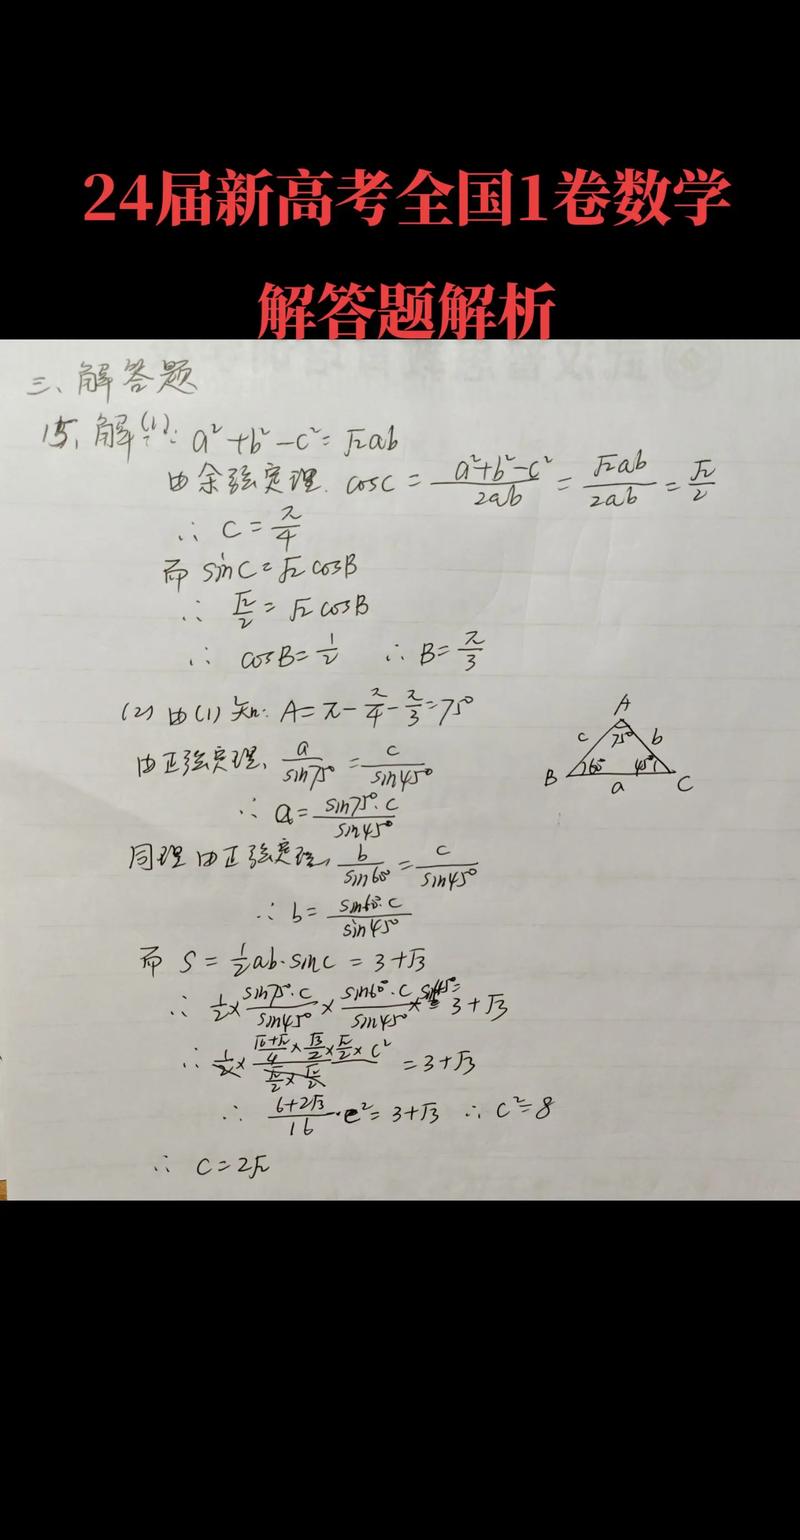 24届新高考全国1卷数学
解答题解析
三、解答题
15、解(1): a²+b²-c²=√2ab
由余弦定理. cosC = (a²+b²-c²)/(2ab) = (√2ab)/(2ab) = √2/2
∴ C = π/4
而 sinC=√2 cosB
∴ √2/2 = √2 cosB
∴ cosB=1/2 ∴ B=π/3
(2) 由(1)知: A=π-π/4-π/3=75°
由正弦定理、 a/sin75° = c/sin45°
∴ a= (sin75°·c)/sin45°
同理由正弦定理, b/sin60° = c/sin45°
∴ b= (sin60°·c)/sin45°
A
c 75° b
B 60° 45° C
a
而 S = 1/2ab·sinC = 3+√3
∴ 1/2 × (sin75°·c)/sin45° × (sin60°·c)/sin45° × sin45°= 3+√3
∴ 1/2 × ((√6+√2)/4 × √3/2 × √2/2 × c²)/(√2/2 × √2/2) = 3+√3
∴ (6+2√3)/16 · c² = 3+√3 ∴ c²=8
∴ c=2√2